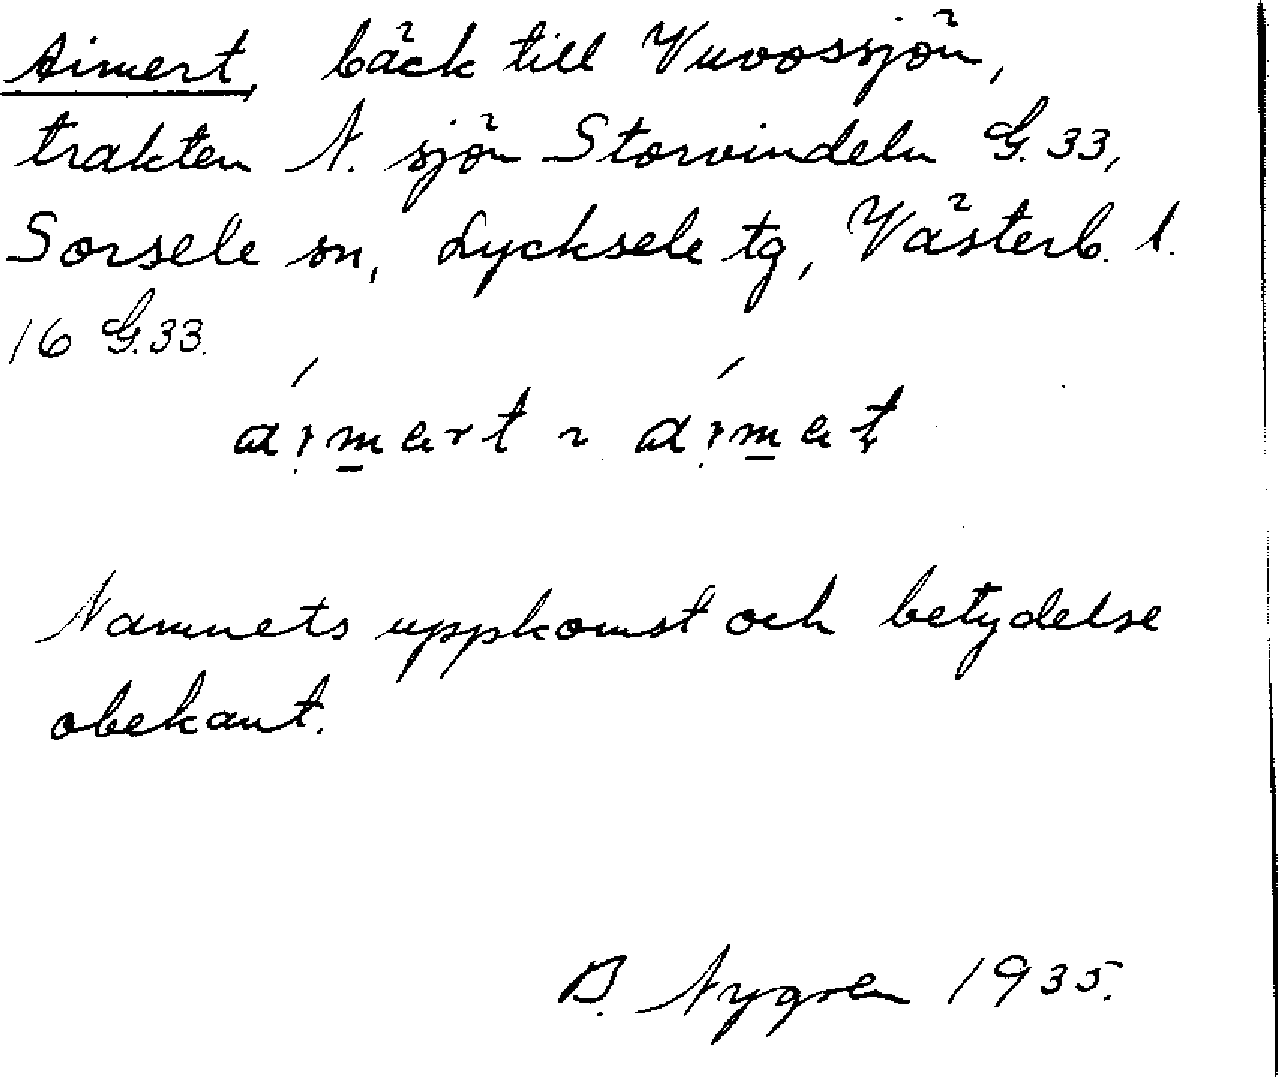 Aimert, bäck till Vuvossjön,
trakten N. sjön Storvindeln G. 33,
Sorsele sn, Lycksele tg, Västerb. l.
16 G. 33.
Namnets uppkomst och betydelse
obekant.
B. Nygren 1935.